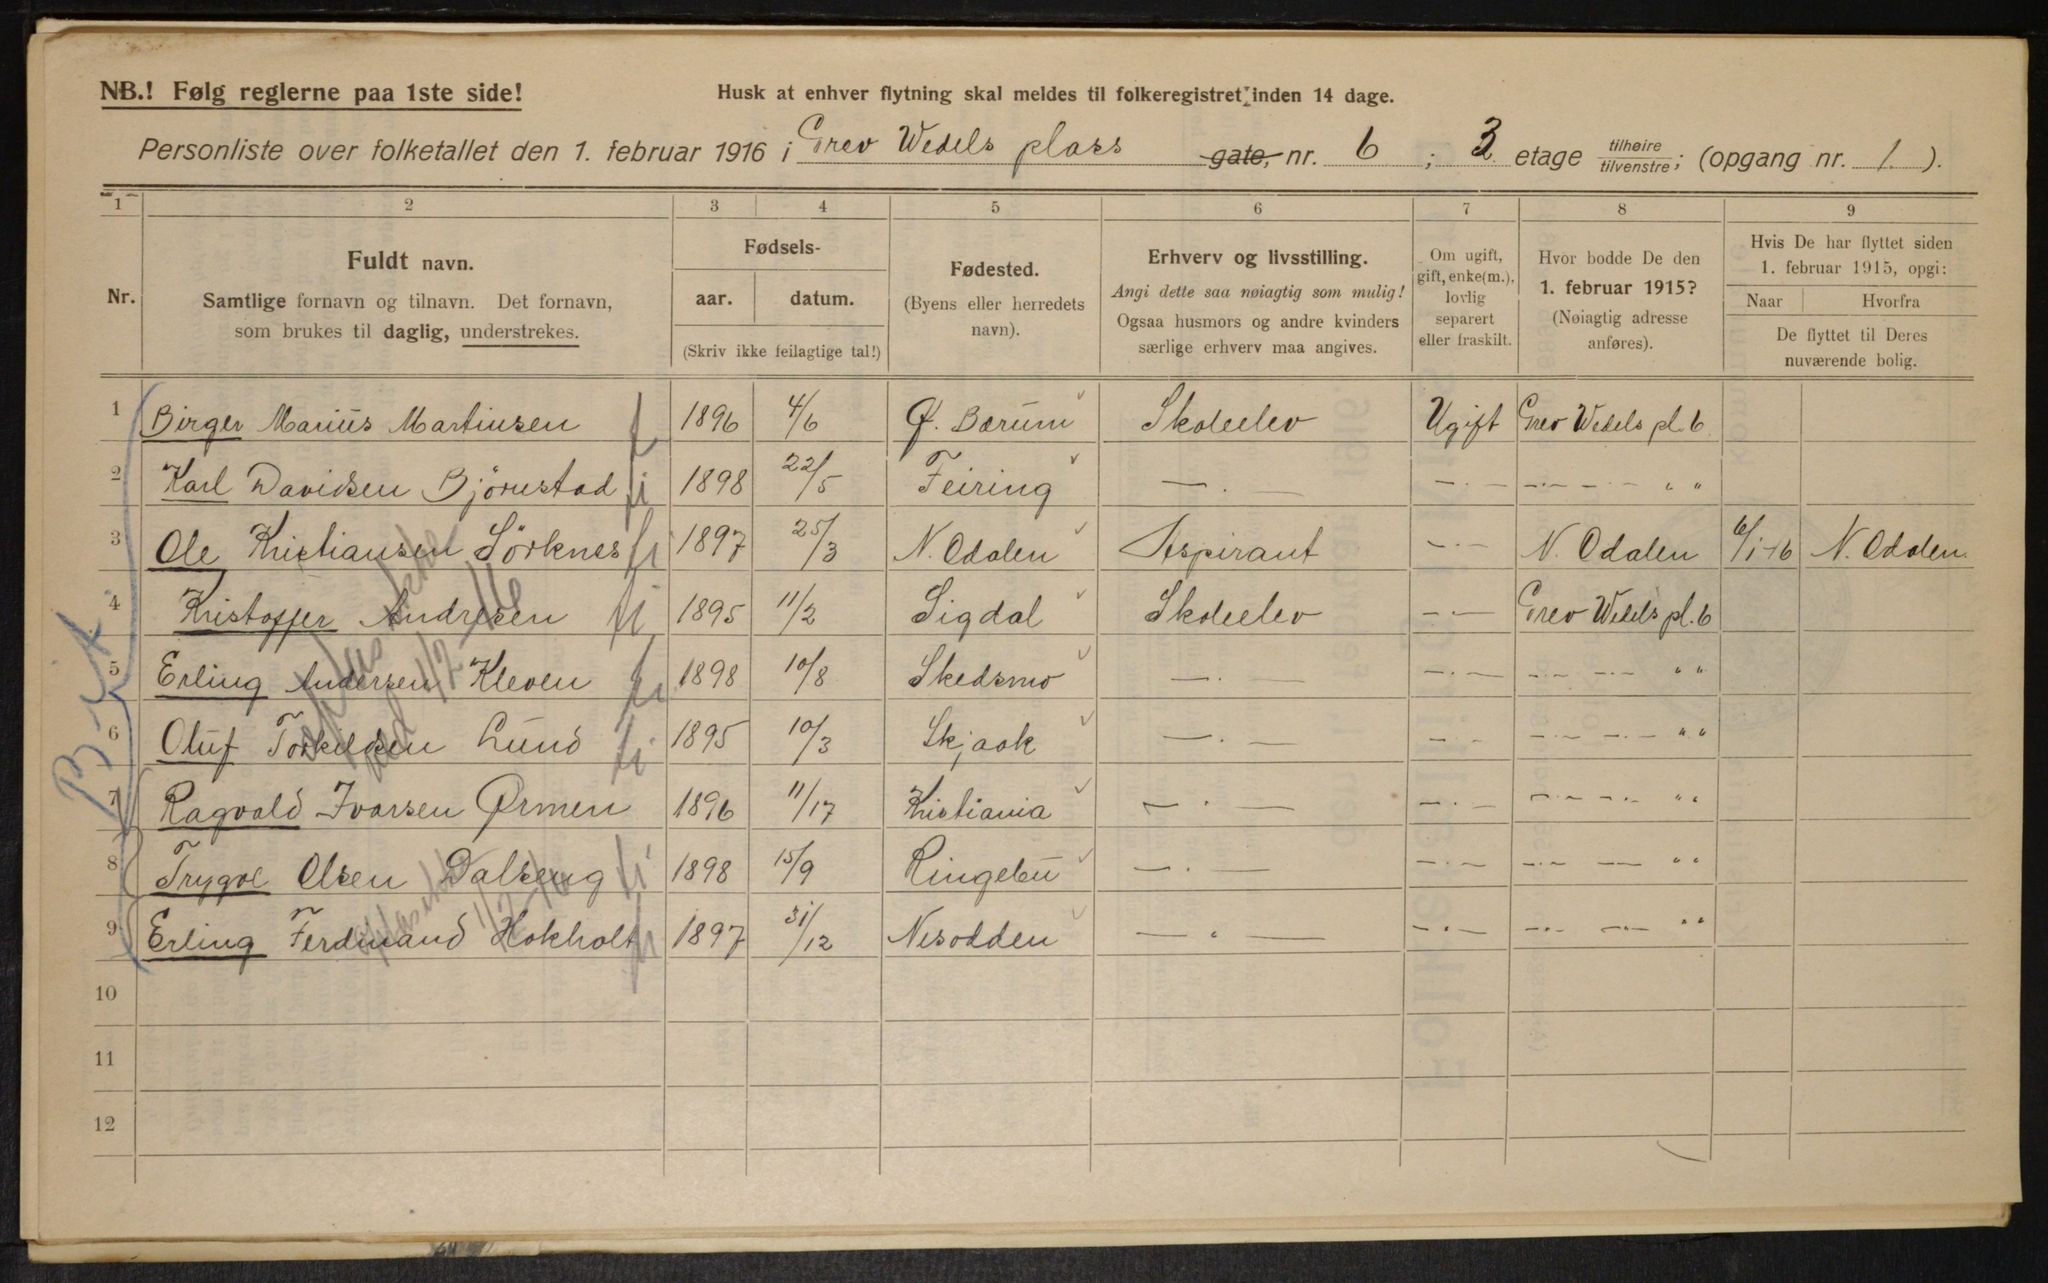 NB.! Følg reglerne paa 1ste side!
Husk at enhver flytning skal meldes til folkeregistret inden 14 dage.
Personliste over folketallet den 1. februar 1916 i Grev Wedels plass gate, nr. 6 ; 3 etage tilhøire tilvenstre; (opgang nr. 1. ).
1 2 3 4 5 6 7 8 9
Nr.
Fuldt navn.
Samtlige fornavn og tilnavn. Det fornavn,
som brukes til daglig, understrekes.
Fødsels-
aar. datum.
(Skriv ikke feilagtige tal!)
Fødested.
(Byens eller herredets
navn).
Erhverv og livsstilling.
Angi dette saa nøiagtig som mulig!
Ogsaa husmors og andre kvinders
særlige erhverv maa angives.
Om ugift,
gift, enke(m.),
lovlig
separert
eller fraskilt.
Hvor bodde De den
1. februar 1915?
(Nøiagtig adresse
anføres).
Hvis De har flyttet siden
1. februar 1915, opgi:
Naar Hvorfra
De flyttet til Deres
nuværende bolig.
1 Birger Marius Martinsen 1896 4/6 Ø. Bærum Skoleelev Ugift Grev Wedels pl. 6
2 Karl Davidsen Bjørnstad 1898 22/5 Feiring — . — — . — — . — — . — " "
3 Ole Kristiansen Sörknes 1897 25/3 N. Odalen Aspirant — . — N. Odalen 6/1-16 N. Odalen.
4 Kristoffer Andresen 1895 11/2 Sigdal Skoleelev — . — Grev Wedels pl. 6
5 Erling Andersen Kleven 1898 10/8 Skedsmo — . — — . — — . — — . — " "
6 Oluf Torkildsen Lund 1895 10/3 Skjaak — . — — . — — . — — . — " "
7 Ragvald Ivarsen Ørmen 1896 11/17 Kristiania — . — — . — — . — — . — " "
8 Trygve Olsen Dalseng 1898 15/9 Ringebu — . — — . — — . — — — " "
9 Erling Ferdinand Hokholt 1897 31/12 Nesodden — . — — . — — . — — — " "
10
11
12